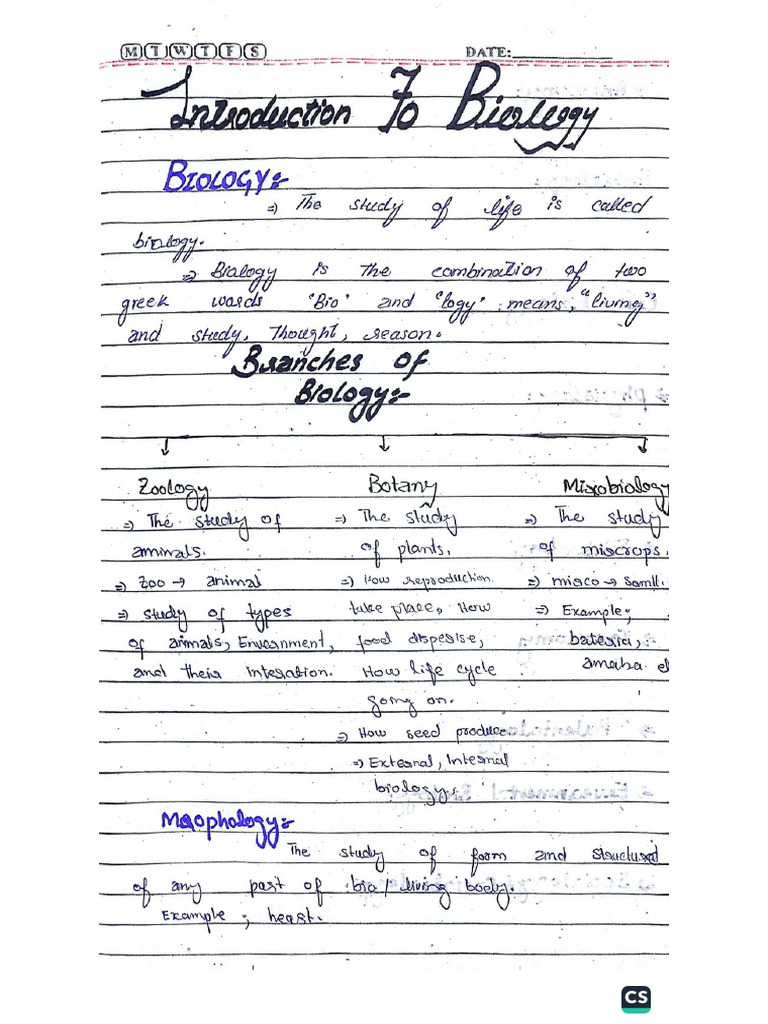 M T W T F S DATE:
Introduction To Biology
BIOLOGY:-
=> The study of life is called
biology.
=> Biology is the combination of two
greek words 'Bio' and 'logy' means, "living"
and study, Thought, reason.
Branches of
Biology:-
Zoology Botany Microbiology
=> The study of => The study => The study
aminals. of plants, of miscrops.
=> Zoo → animal => How reproduction => micro → Samll.
=> study of types take place, How => Example;
of animals, Envernment, food disperise, bateria,
and their interation. How life cycle amaba.
going on.
=> How seed produce
=> External, Internal
biology.
Morophology:-
The study of form and structural
of any part of bio / living body.
Example ; heart.
CS